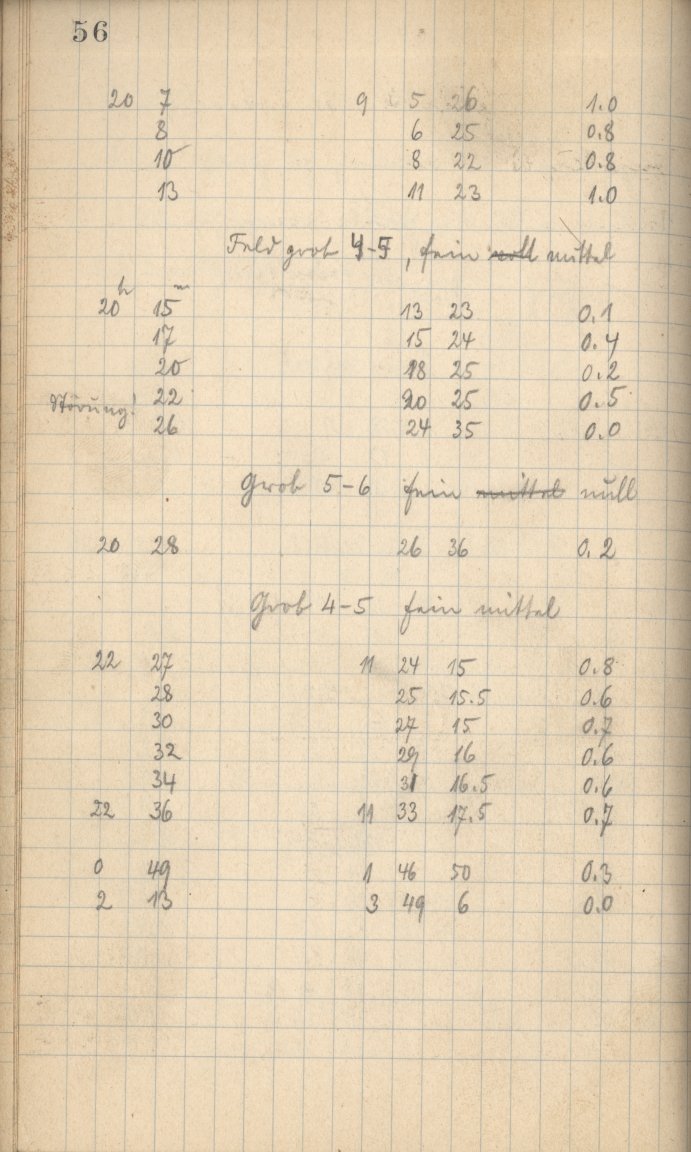 56
20 7 9 5 26 1.0
8 6 25 0.8
10 8 22 0.8
13 11 23 1.0
Feld grob 4-5, fein mittel
20h 15m 13 23 0.1
17 15 24 0.4
20 18 25 0.2
22 20 25 0.5
Störung! 26 24 35 0.0
Grob 5-6 fein mittel null
20 28 26 36 0.2
Grob 4-5 fein mittel
22 27 11 24 15 0.8
28 25 15.5 0.6
30 27 15 0.7
32 29 16 0.6
34 31 16.5 0.6
22 36 11 33 17.5 0.7
0 49 1 46 50 0.3
2 13 3 49 6 0.0